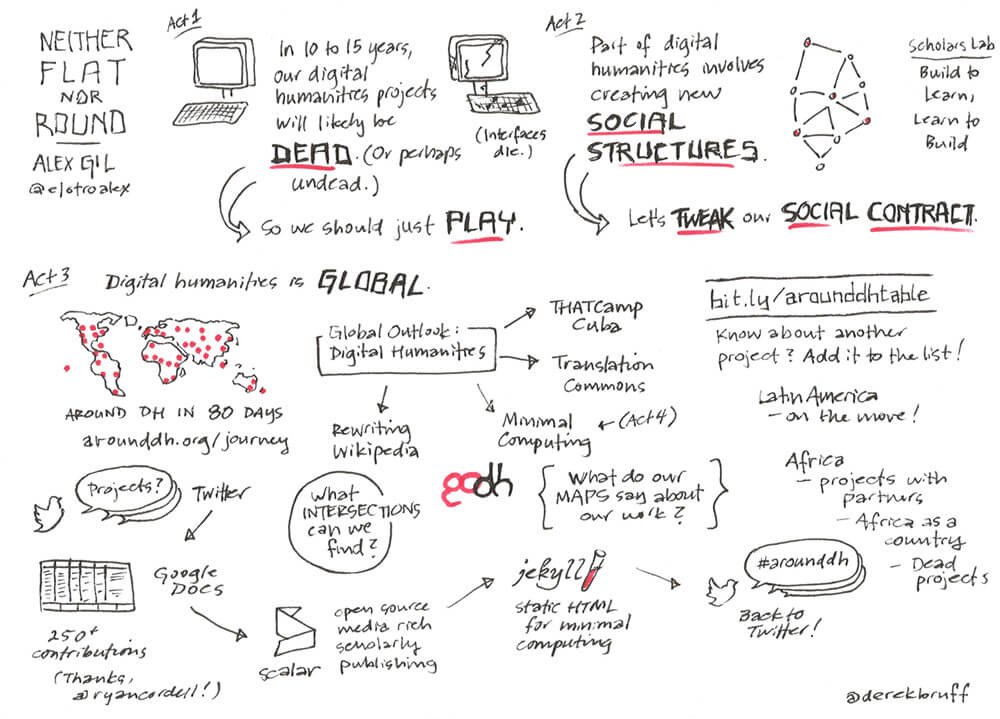 NEITHER
FLAT
NOR
ROUND
ALEX GIL
@elotroalex
Act 1
In 10 to 15 years,
our digital
humanities projects
will likely be
DEAD. (Or perhaps
undead.)
(Interfaces
die.)
So we should just PLAY.
Act 2
Part of digital
humanities involves
creating new
SOCIAL
STRUCTURES.
Let's TWEAK our SOCIAL CONTRACT.
Scholars Lab
Build to
Learn,
Learn to
Build
Act 3
Digital humanities is GLOBAL.
AROUND DH IN 80 DAYS
arounddh.org/journey
Global Outlook:
Digital Humanities
THATCamp
Cuba
Translation
Commons
Minimal
Computing
(Act 4)
Rewriting
Wikipedia
bit.ly/arounddhtable
Know about another
project? Add it to the list!
Latin America
- on the move!
Africa
- projects with
partners
- Africa as a
country
- Dead
projects
Projects?
Twitter
Google
Docs
250+
contributions
(Thanks,
@ryancordell!)
What
INTERSECTIONS
can we
find?
go::dh
What do our
MAPS say about
our work?
Scalar
open source
media rich
scholarly
publishing
jekyll
static HTML
for minimal
computing
#arounddh
Back to
Twitter!
@derekbruff